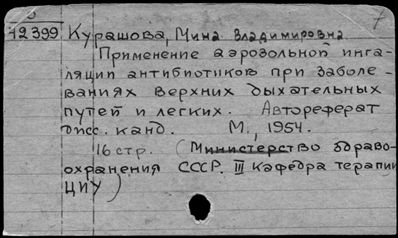 5 7
12399 Курашова, Мина Владимировна
Применение аэрозольной инга-
ляции антибиотиков при заболе-
ваниях верхних дыхательных
путей и легких. Автореферат
дисс. канд. М., 1954.
16 стр. (Министерство здраво-
охранения СССР. III кафедра терапии
ЦИУ)